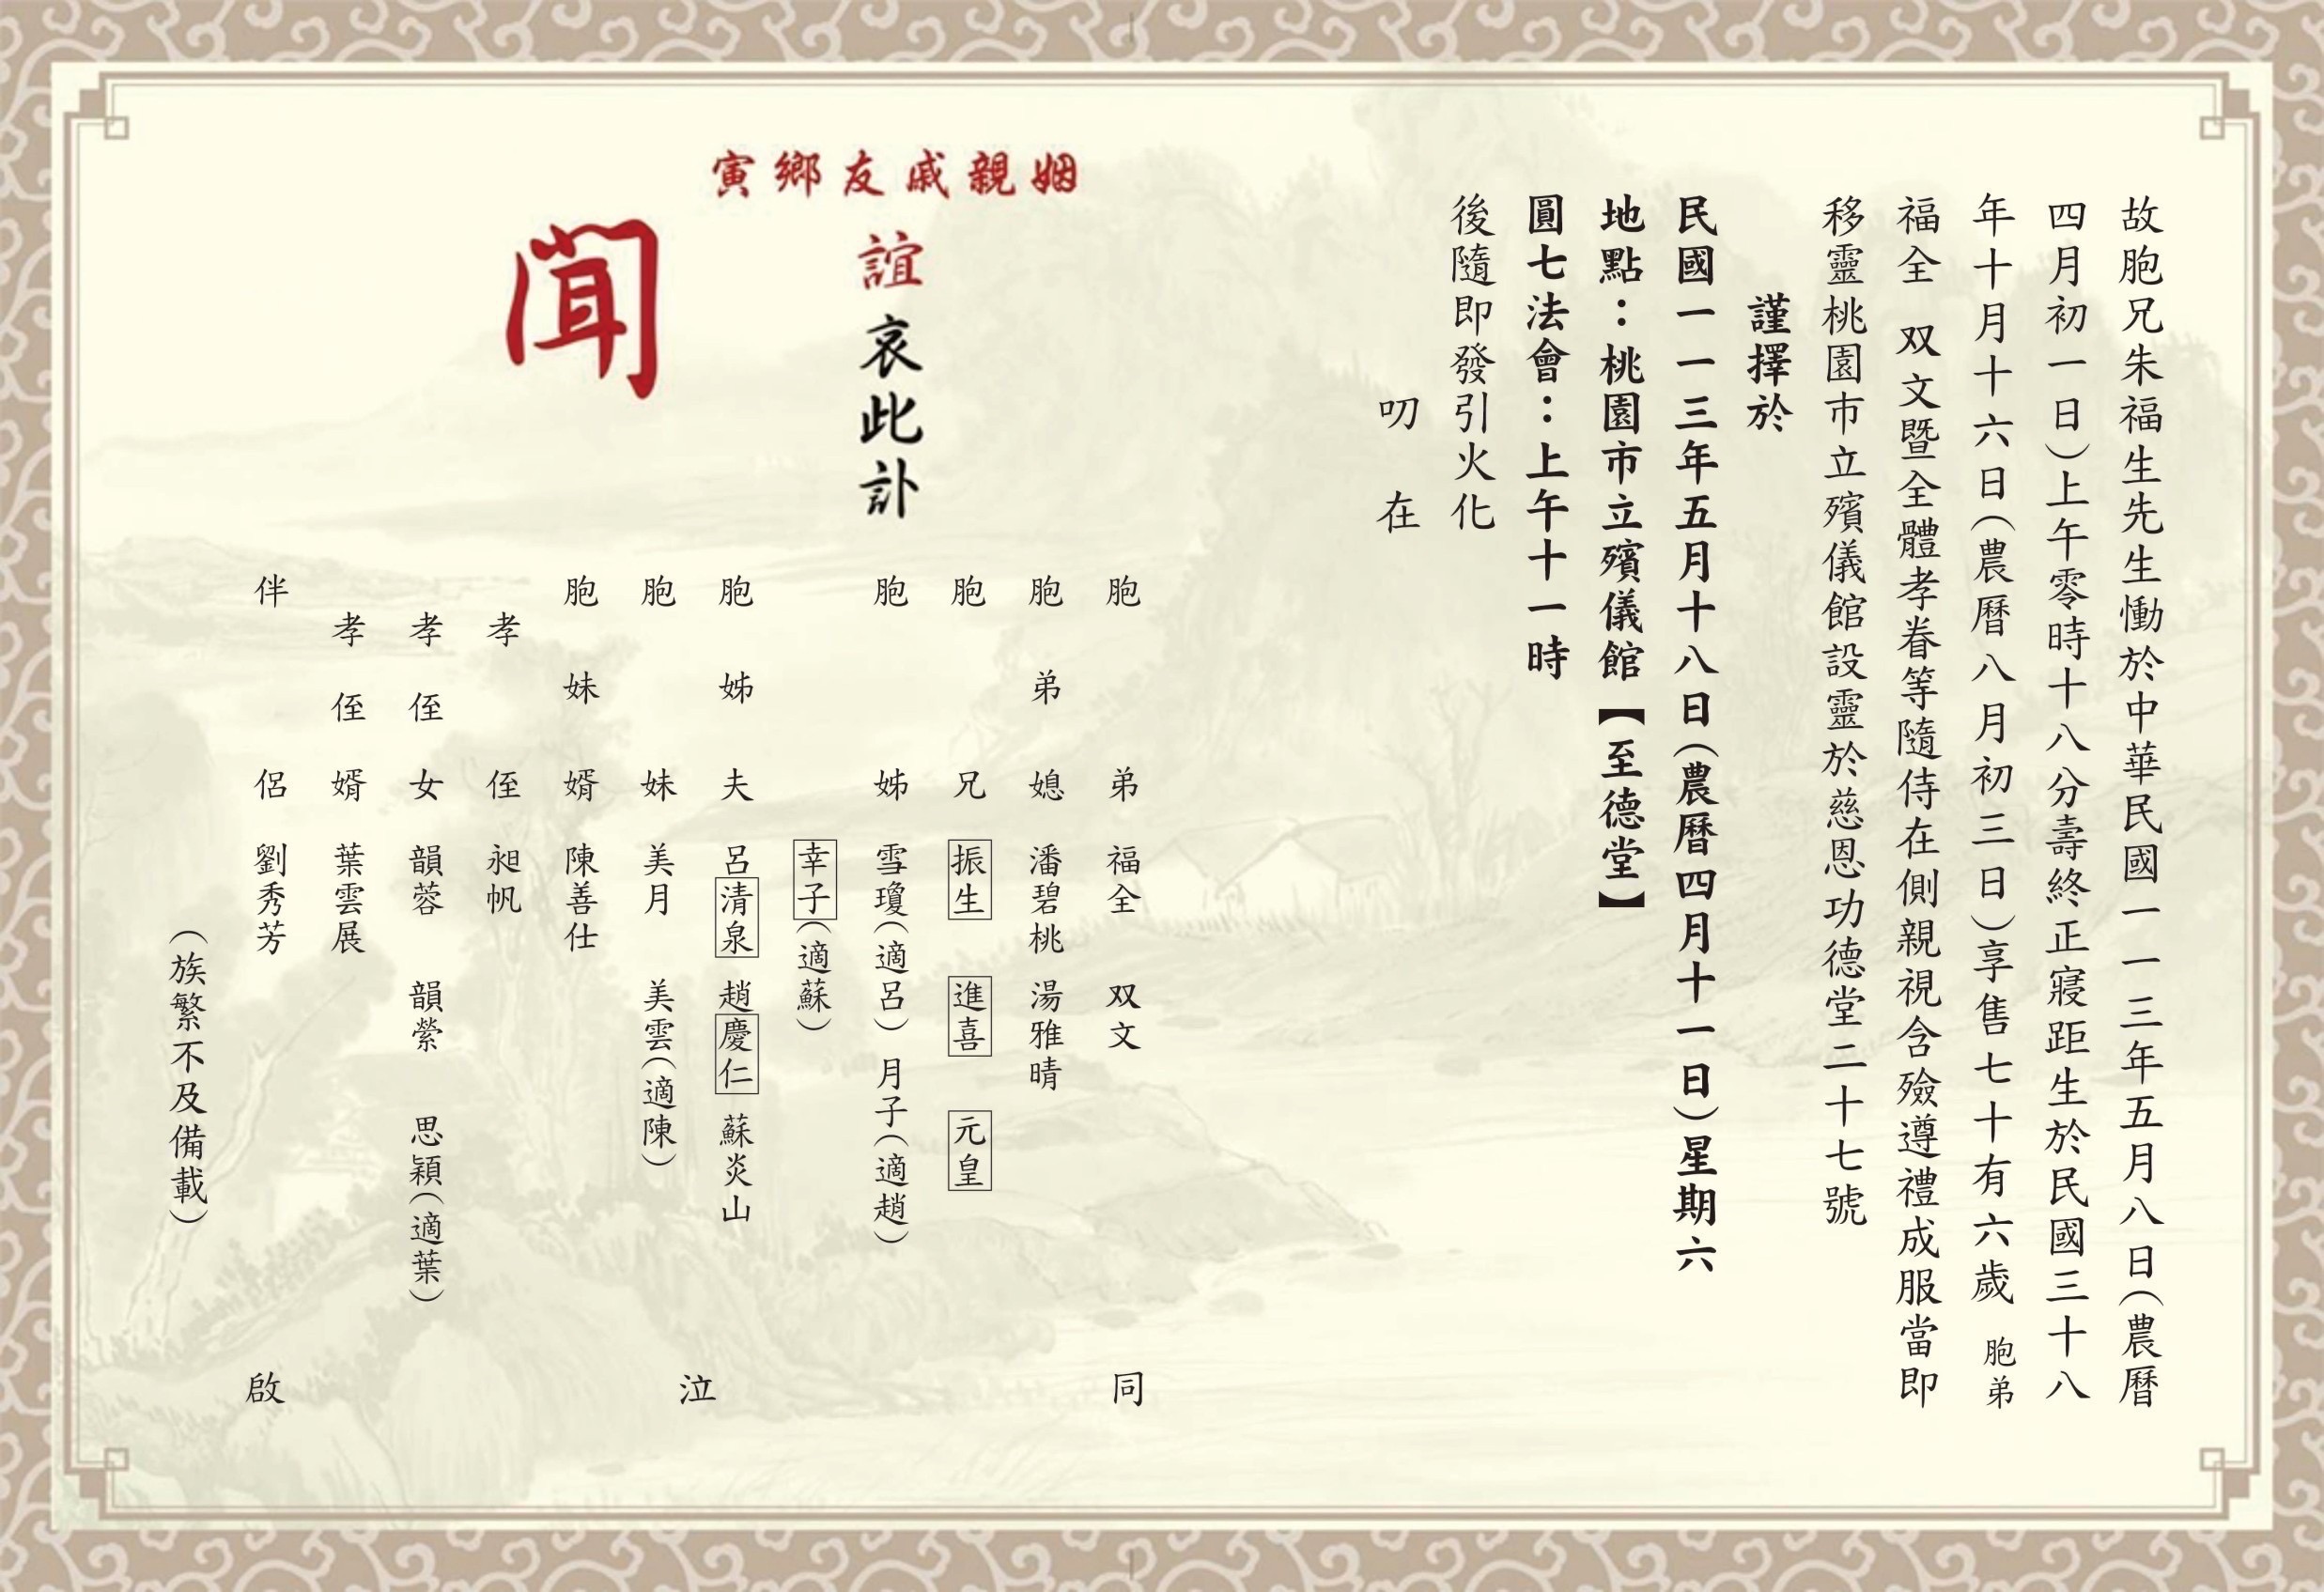 故胞兄朱福生先生慟於中華民國一一三年五月八日(農曆
四月初一日)上午零時十八分壽終正寢距生於民國三十八
年十月十六日(農曆八月初三日)享售七十有六歲 胞弟
福全 双文暨全體孝眷等隨侍在側親視含殮遵禮成服當即
移靈桃園市立殯儀館設靈於慈恩功德堂二十七號
謹擇於
民國一一三年五月十八日(農曆四月十一日)星期六
地點：桃園市立殯儀館【至德堂】
圓七法會：上午十一時
後隨即發引火化
叨 在
姻親戚友鄉寅
誼哀此訃
聞
胞弟 福全 双文
胞弟媳 潘碧桃 湯雅晴
胞兄 振生 進喜 元皇
胞姊 雪瓊(適呂) 月子(適趙)
幸子(適蘇)
胞姊夫 呂清泉 趙慶仁 蘇炎山
胞妹 美月 美雲(適陳)
胞妹婿 陳善仕
孝侄 昶帆
孝侄女 韻蓉 韻縈 思穎(適葉)
孝侄婿 葉雲展
伴侶 劉秀芳
(族繁不及備載)
同 泣 啟